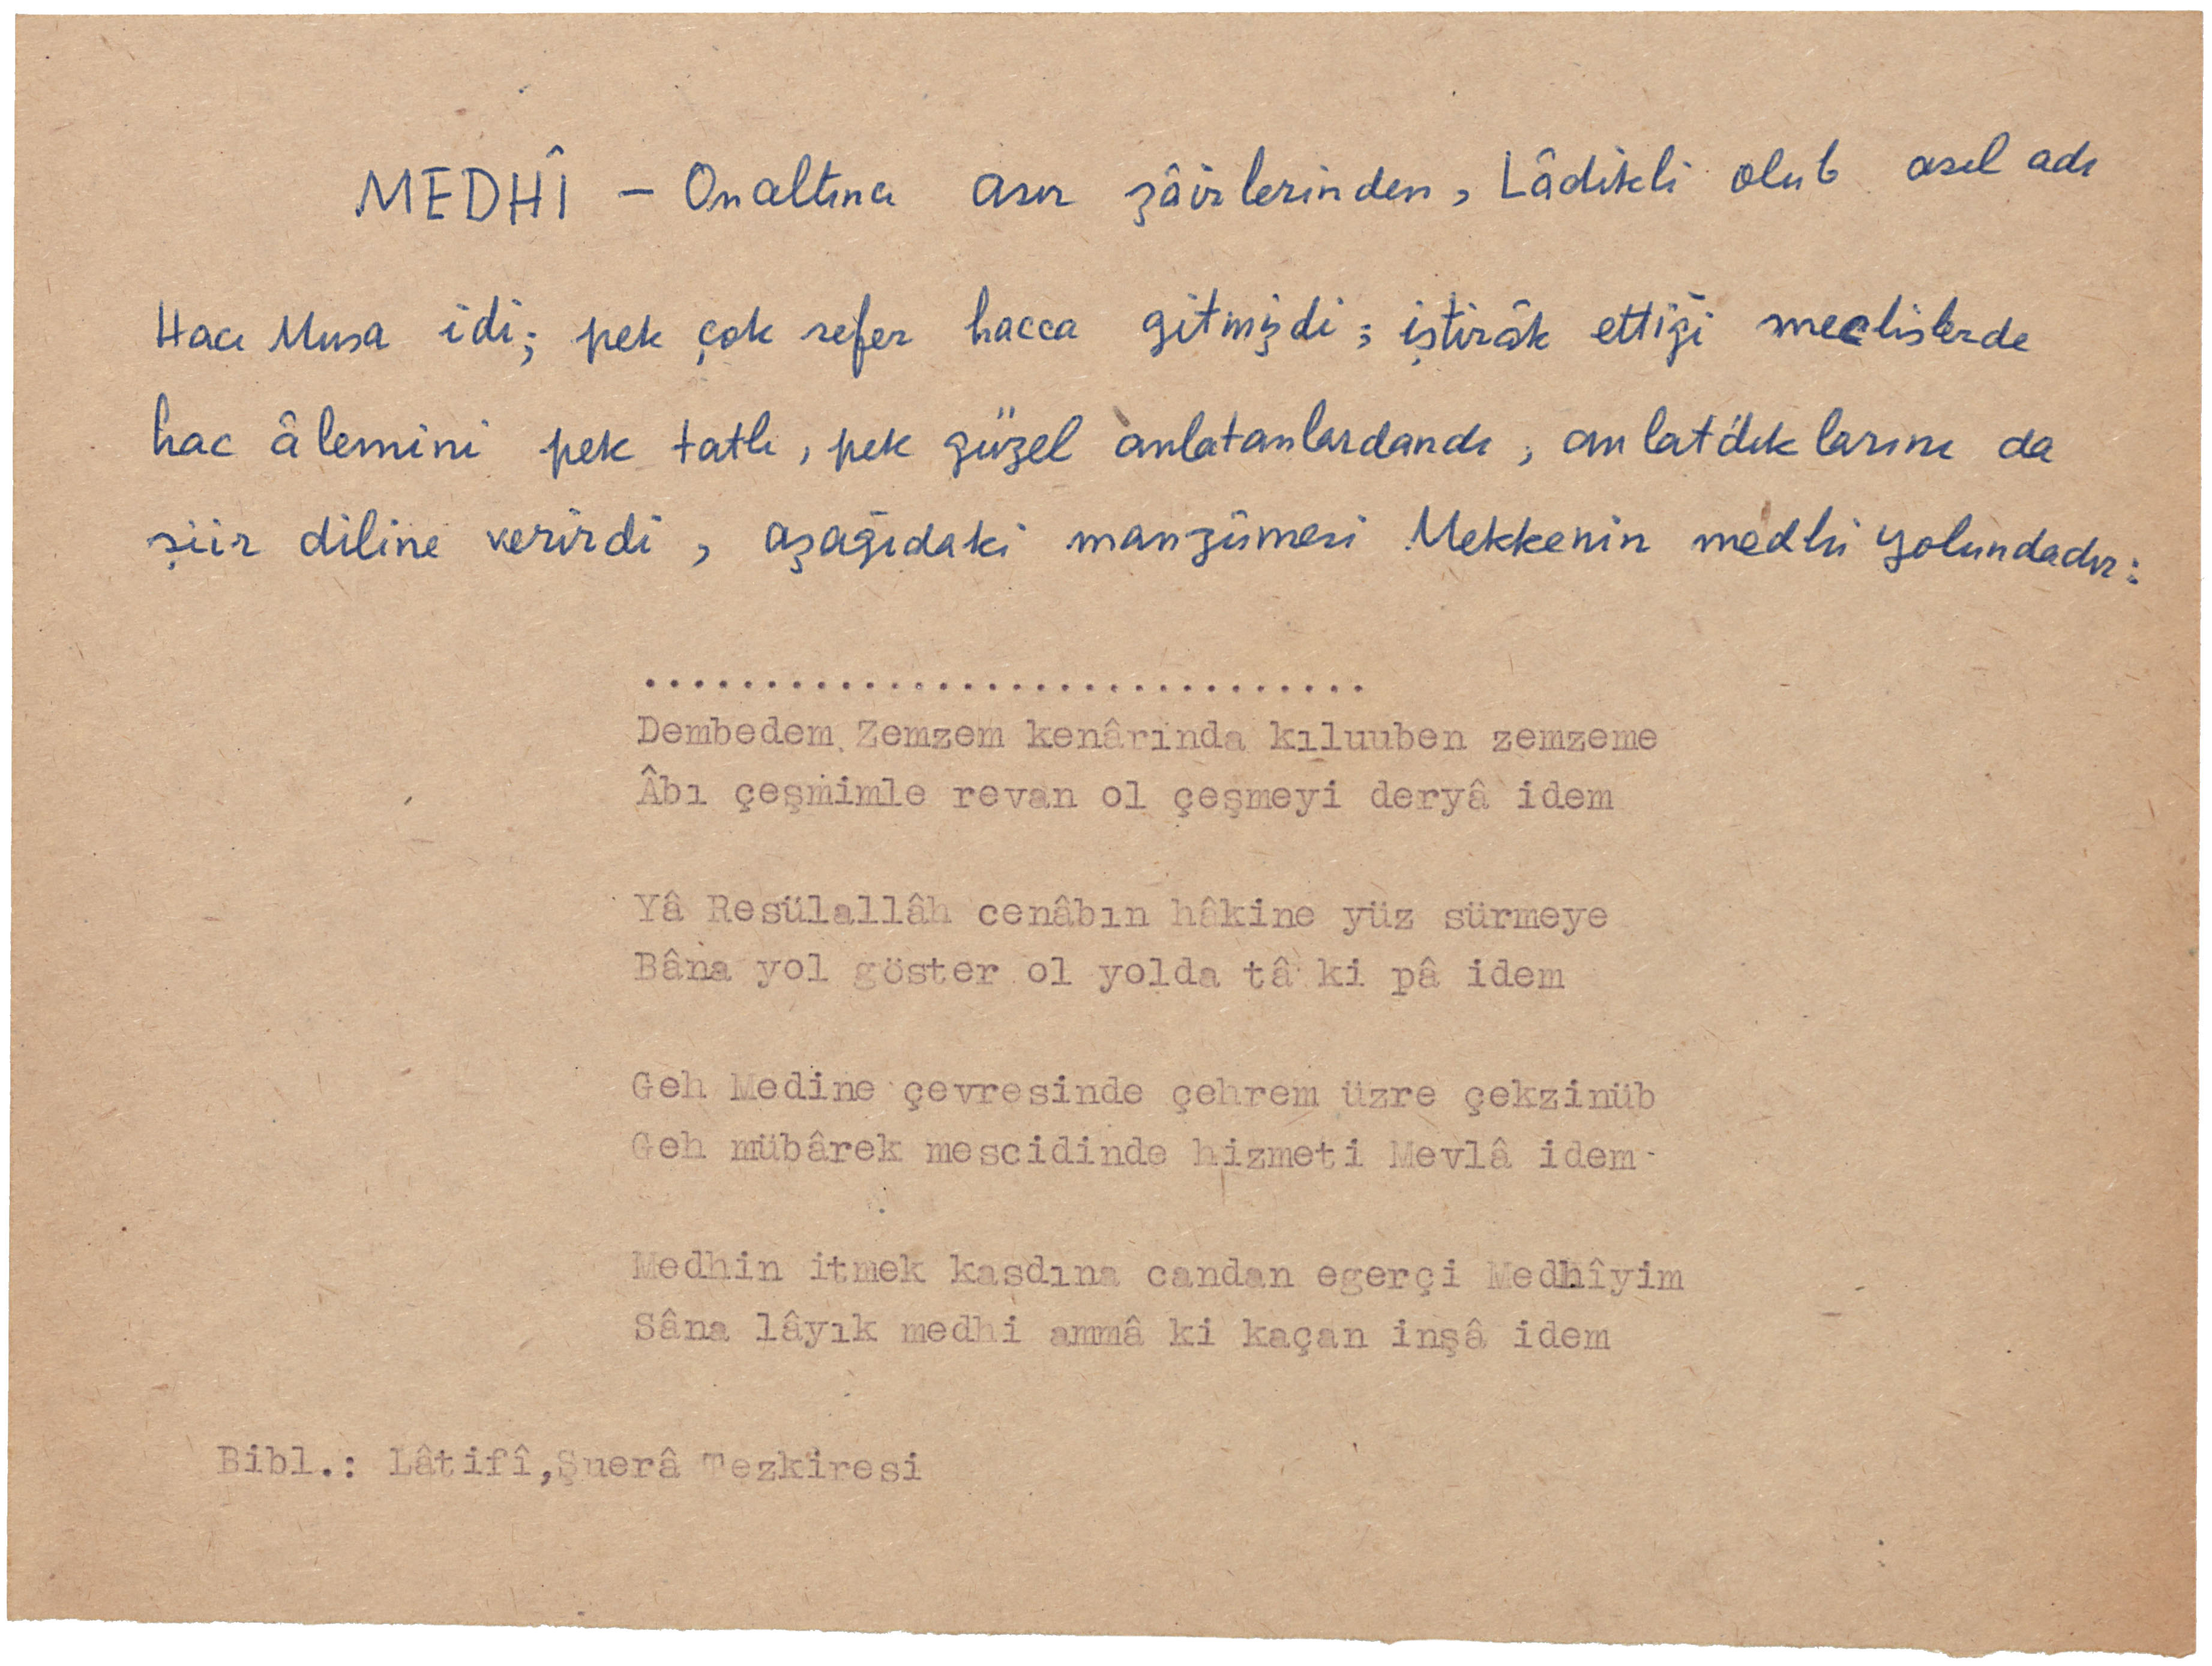 MEDHÎ – Onaltıncı asır şâirlerinden, Lâdikli olub asıl adı
Hacı Musa idi; pek çok sefer hacca gitmişdi; iştirâk ettiği meclislerde
hac âlemini pek tatlı, pek güzel anlatanlardandı, anlatdıklarını da
şiir diline verirdi, aşağıdaki manzûmesi Mekkenin medhi yolundadır:
..............................
Dembedem Zemzem kenârında kıluuben zemzeme
Âbı çeşmimle revan ol çeşmeyi deryâ idem
Yâ Resülallâh cenâbın hâkine yüz sürmeye
Bâna yol göster ol yolda tâ ki pâ idem
Geh Medine çevresinde çehrem üzre çekzinüb
Geh mübârek mescidinde hizmeti Mevlâ idem
Medhin itmek kasdına candan egerçi Medhîyim
Sâna lâyık medhi ammâ ki kaçan inşâ idem
Bibl.: Lâtifî,Şuerâ Tezkiresi